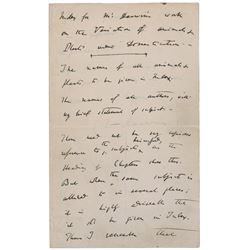 Index for Mr Darwin's work
on the Variation of animals &
Plants under Domestication —
The names of all animals &
plants to be given in Index.
The names of all authors, with
very brief statement of subject —
There need not be any
reference to subjects in the
Heading of Chapters
But when the same subject is
allued to in several places;
it is highly
it to be given in Index.
Then I